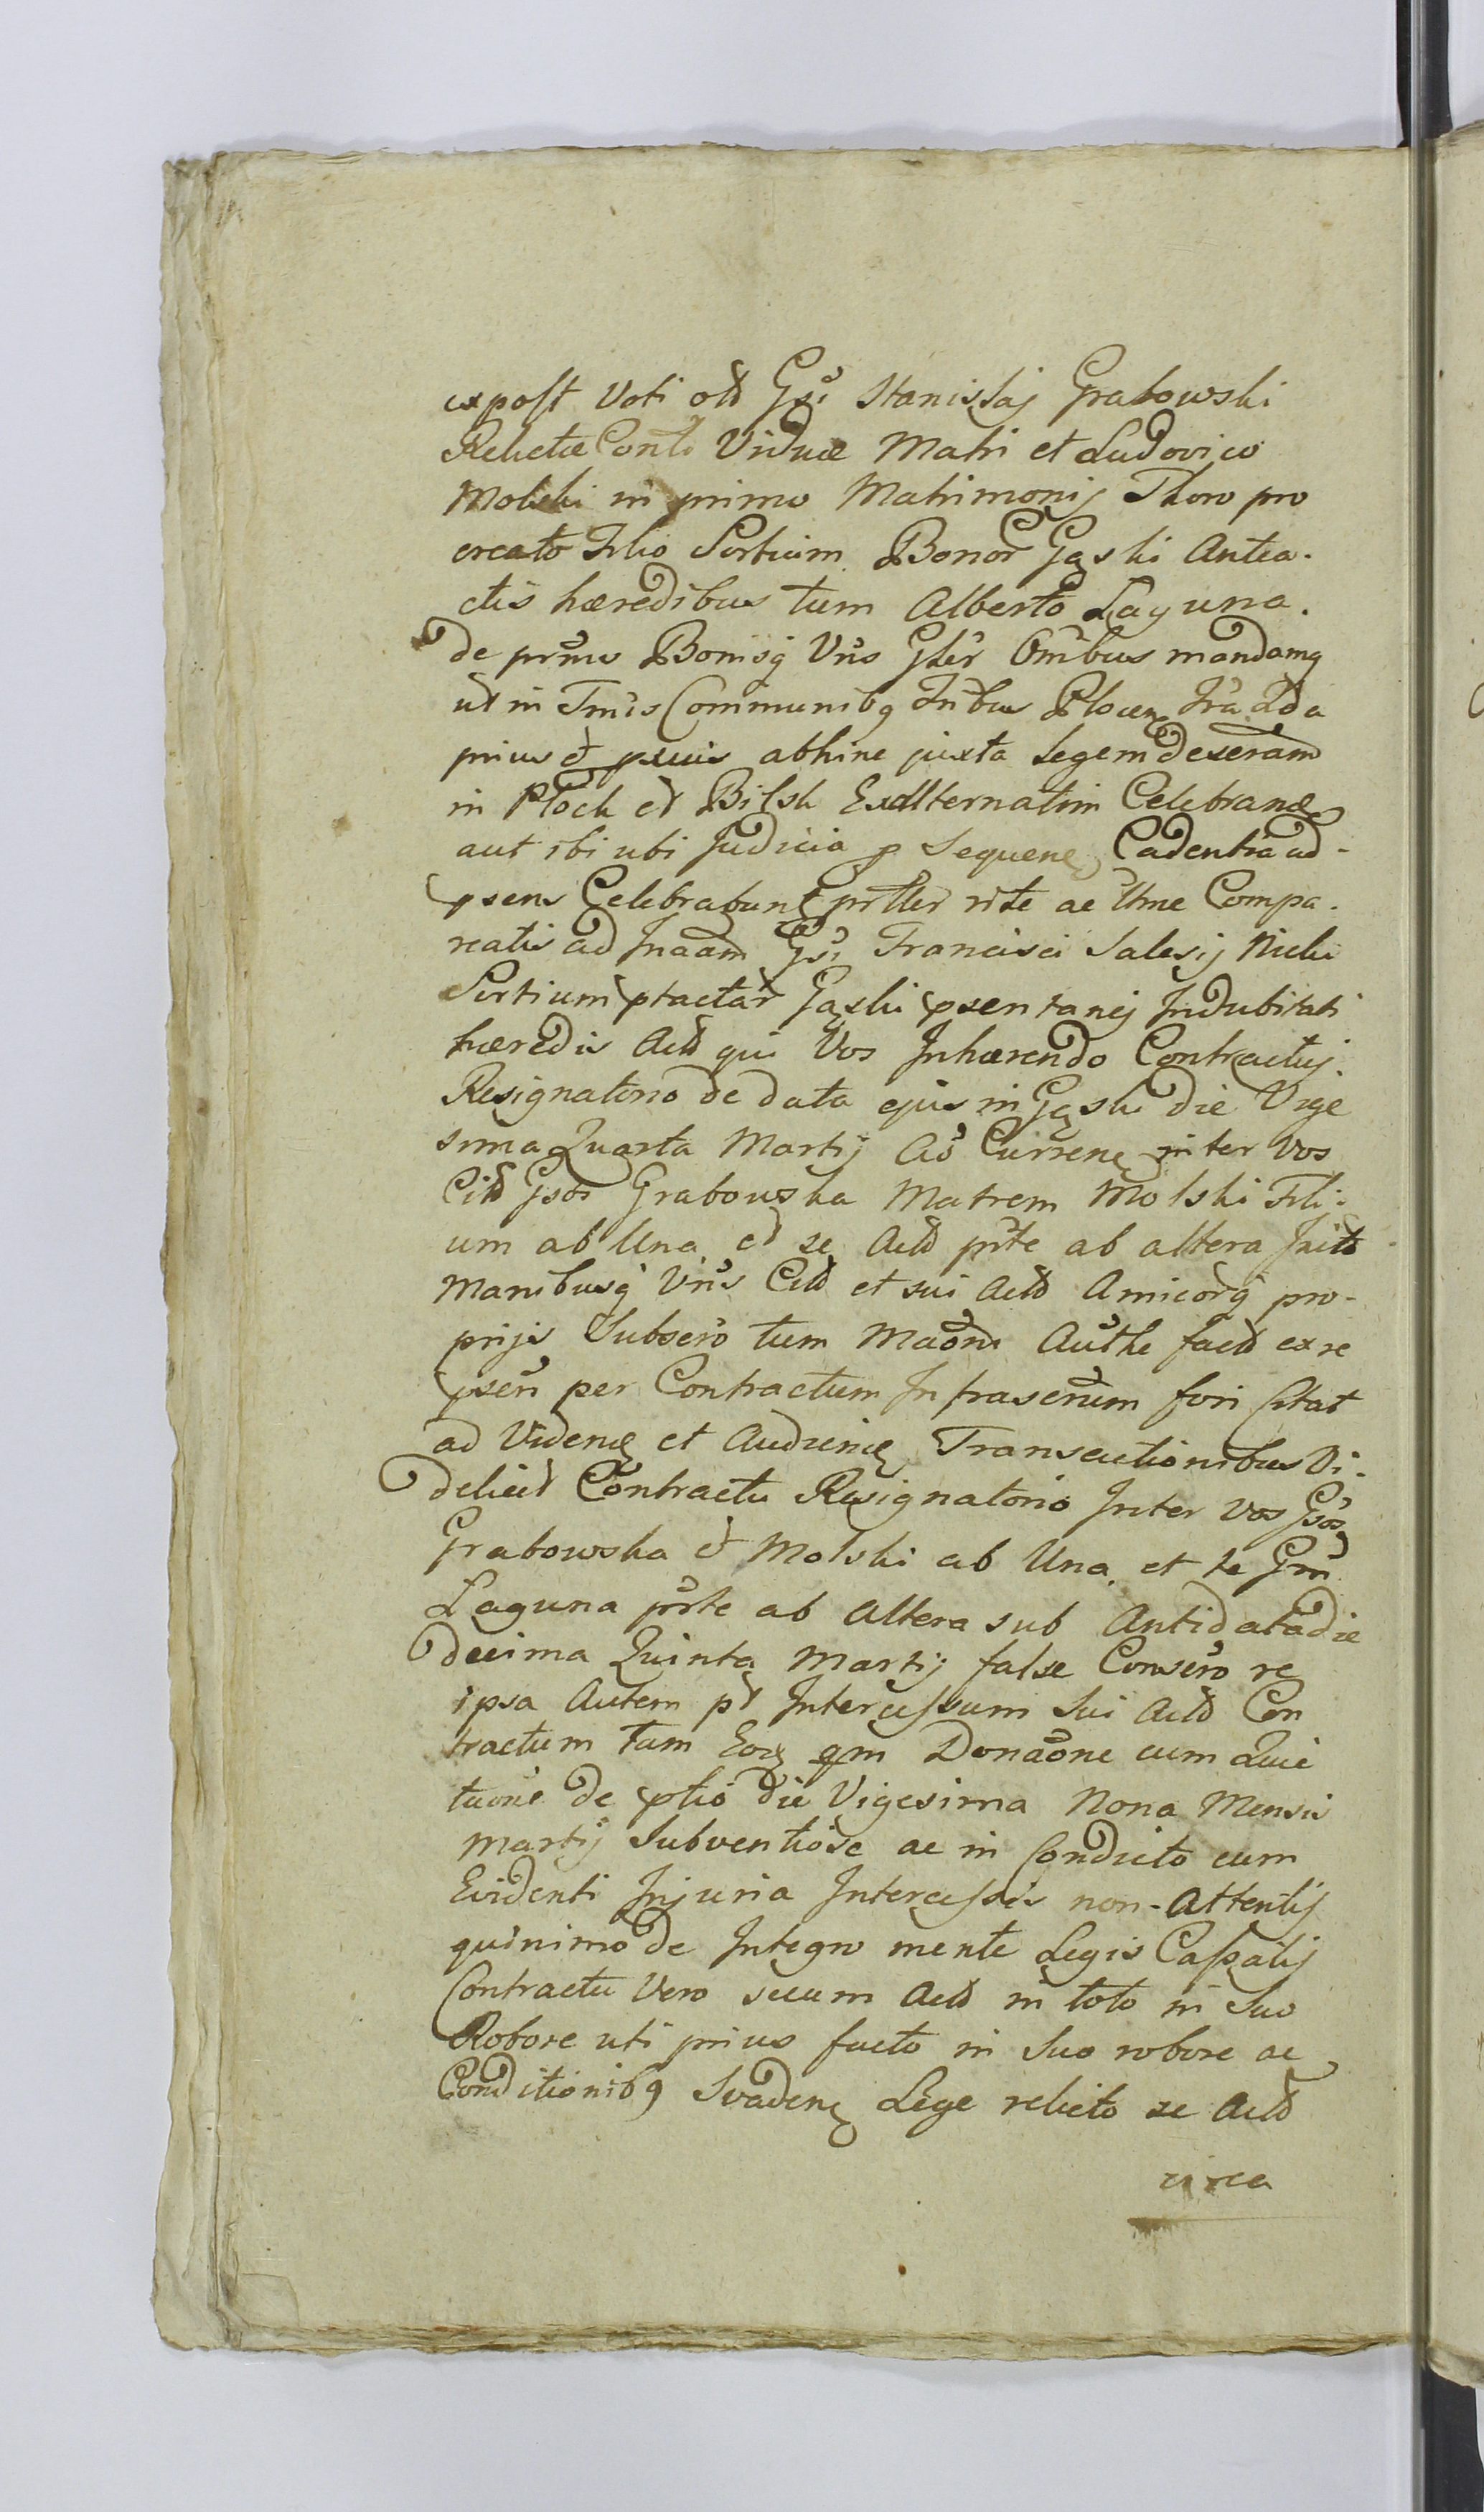 expost Voti old Gsi Stanislaj Grabowski
Relictæ Viduæ Matri et Ludovico
Molski in primo Matrimonij Thoro pro
creato Filio Sortium Bonor Gąski Antea-
ctis hæredibus tum Alberto Laguna.
de prmis Bonisq Vris Gler Omībus mandamq
ut in Tmis Communibq Ploceñ
prius et abhinc juxta Legem deserand
in Plock et Bilsk Exalternatim Celebrand
aut ibi ubi Judicia p Sequene Cadentia ad-
psens Celebrabunt rite ac Compa-
reatis ad Inaam Gsi Francisci Salesij
Sortium ptactar Gąski psentanej Indubitati
hæredis Actd qui Vos Inhærendo Contractuj
Resignatorio de data ejus in Gąski die Vige
sima Quarta Martij Ao Currene inter Vos
Citd Gsos Grabowska Matrem Molski Fili-
um ab Una et se Actd prte ab altera Initd
Manibusq Vris Citd et sui Actd Amicorq pro-
prijs Subscro tum Authe factd ex re
pseñ per Contractum Infrascrtum fori Citat
ad Videne et Audiene Transactionibus Vi-
delicet Contractu Resignatorio Inter vos Gsos
Grabowska et Molski ab Una et te Gm
Laguna prte ab Altera sub Antidata die
decima Quinta Martij false Conscro re
ipsa Autem pt Intercessum Sui Actd Con
tractum tam Eoq qm Donaõne cum Quie
taõne de ptio die Vigesima Nona Mensis
Martij Subventiose ac in Condicto cum
Evidenti Injuria Intercessis non-Attentis
quinimo de Integro mente Legis Cassatis
Contractu Vero secum Actd in toto in Suo
Robore uti prius facto in Suo robore ac
Conditionibq Svadene Lege relicto se Actd
circa